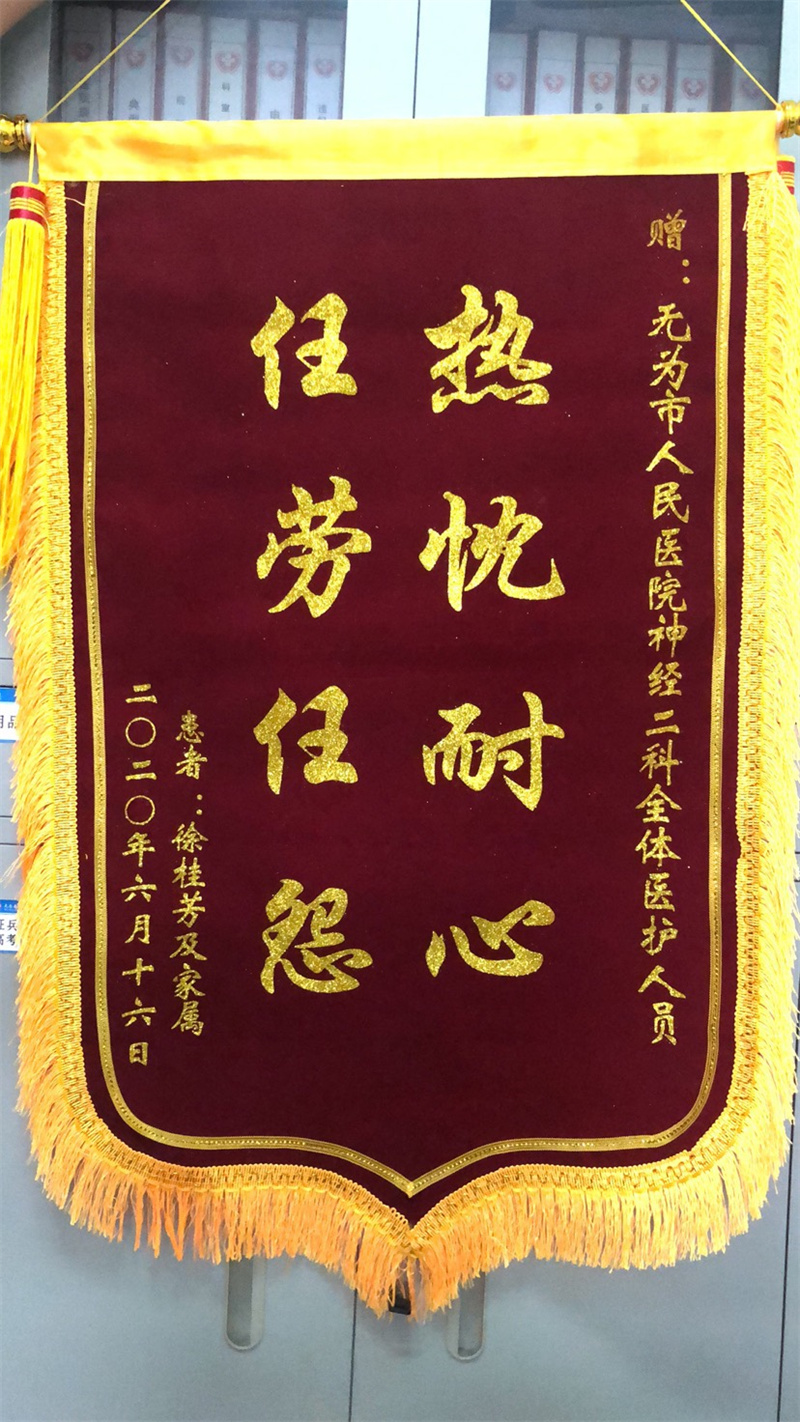 赠：无为市人民医院神经二科全体医护人员
热忱耐心
任劳任怨
患者：徐桂芳及家属
二〇二〇年六月十六日